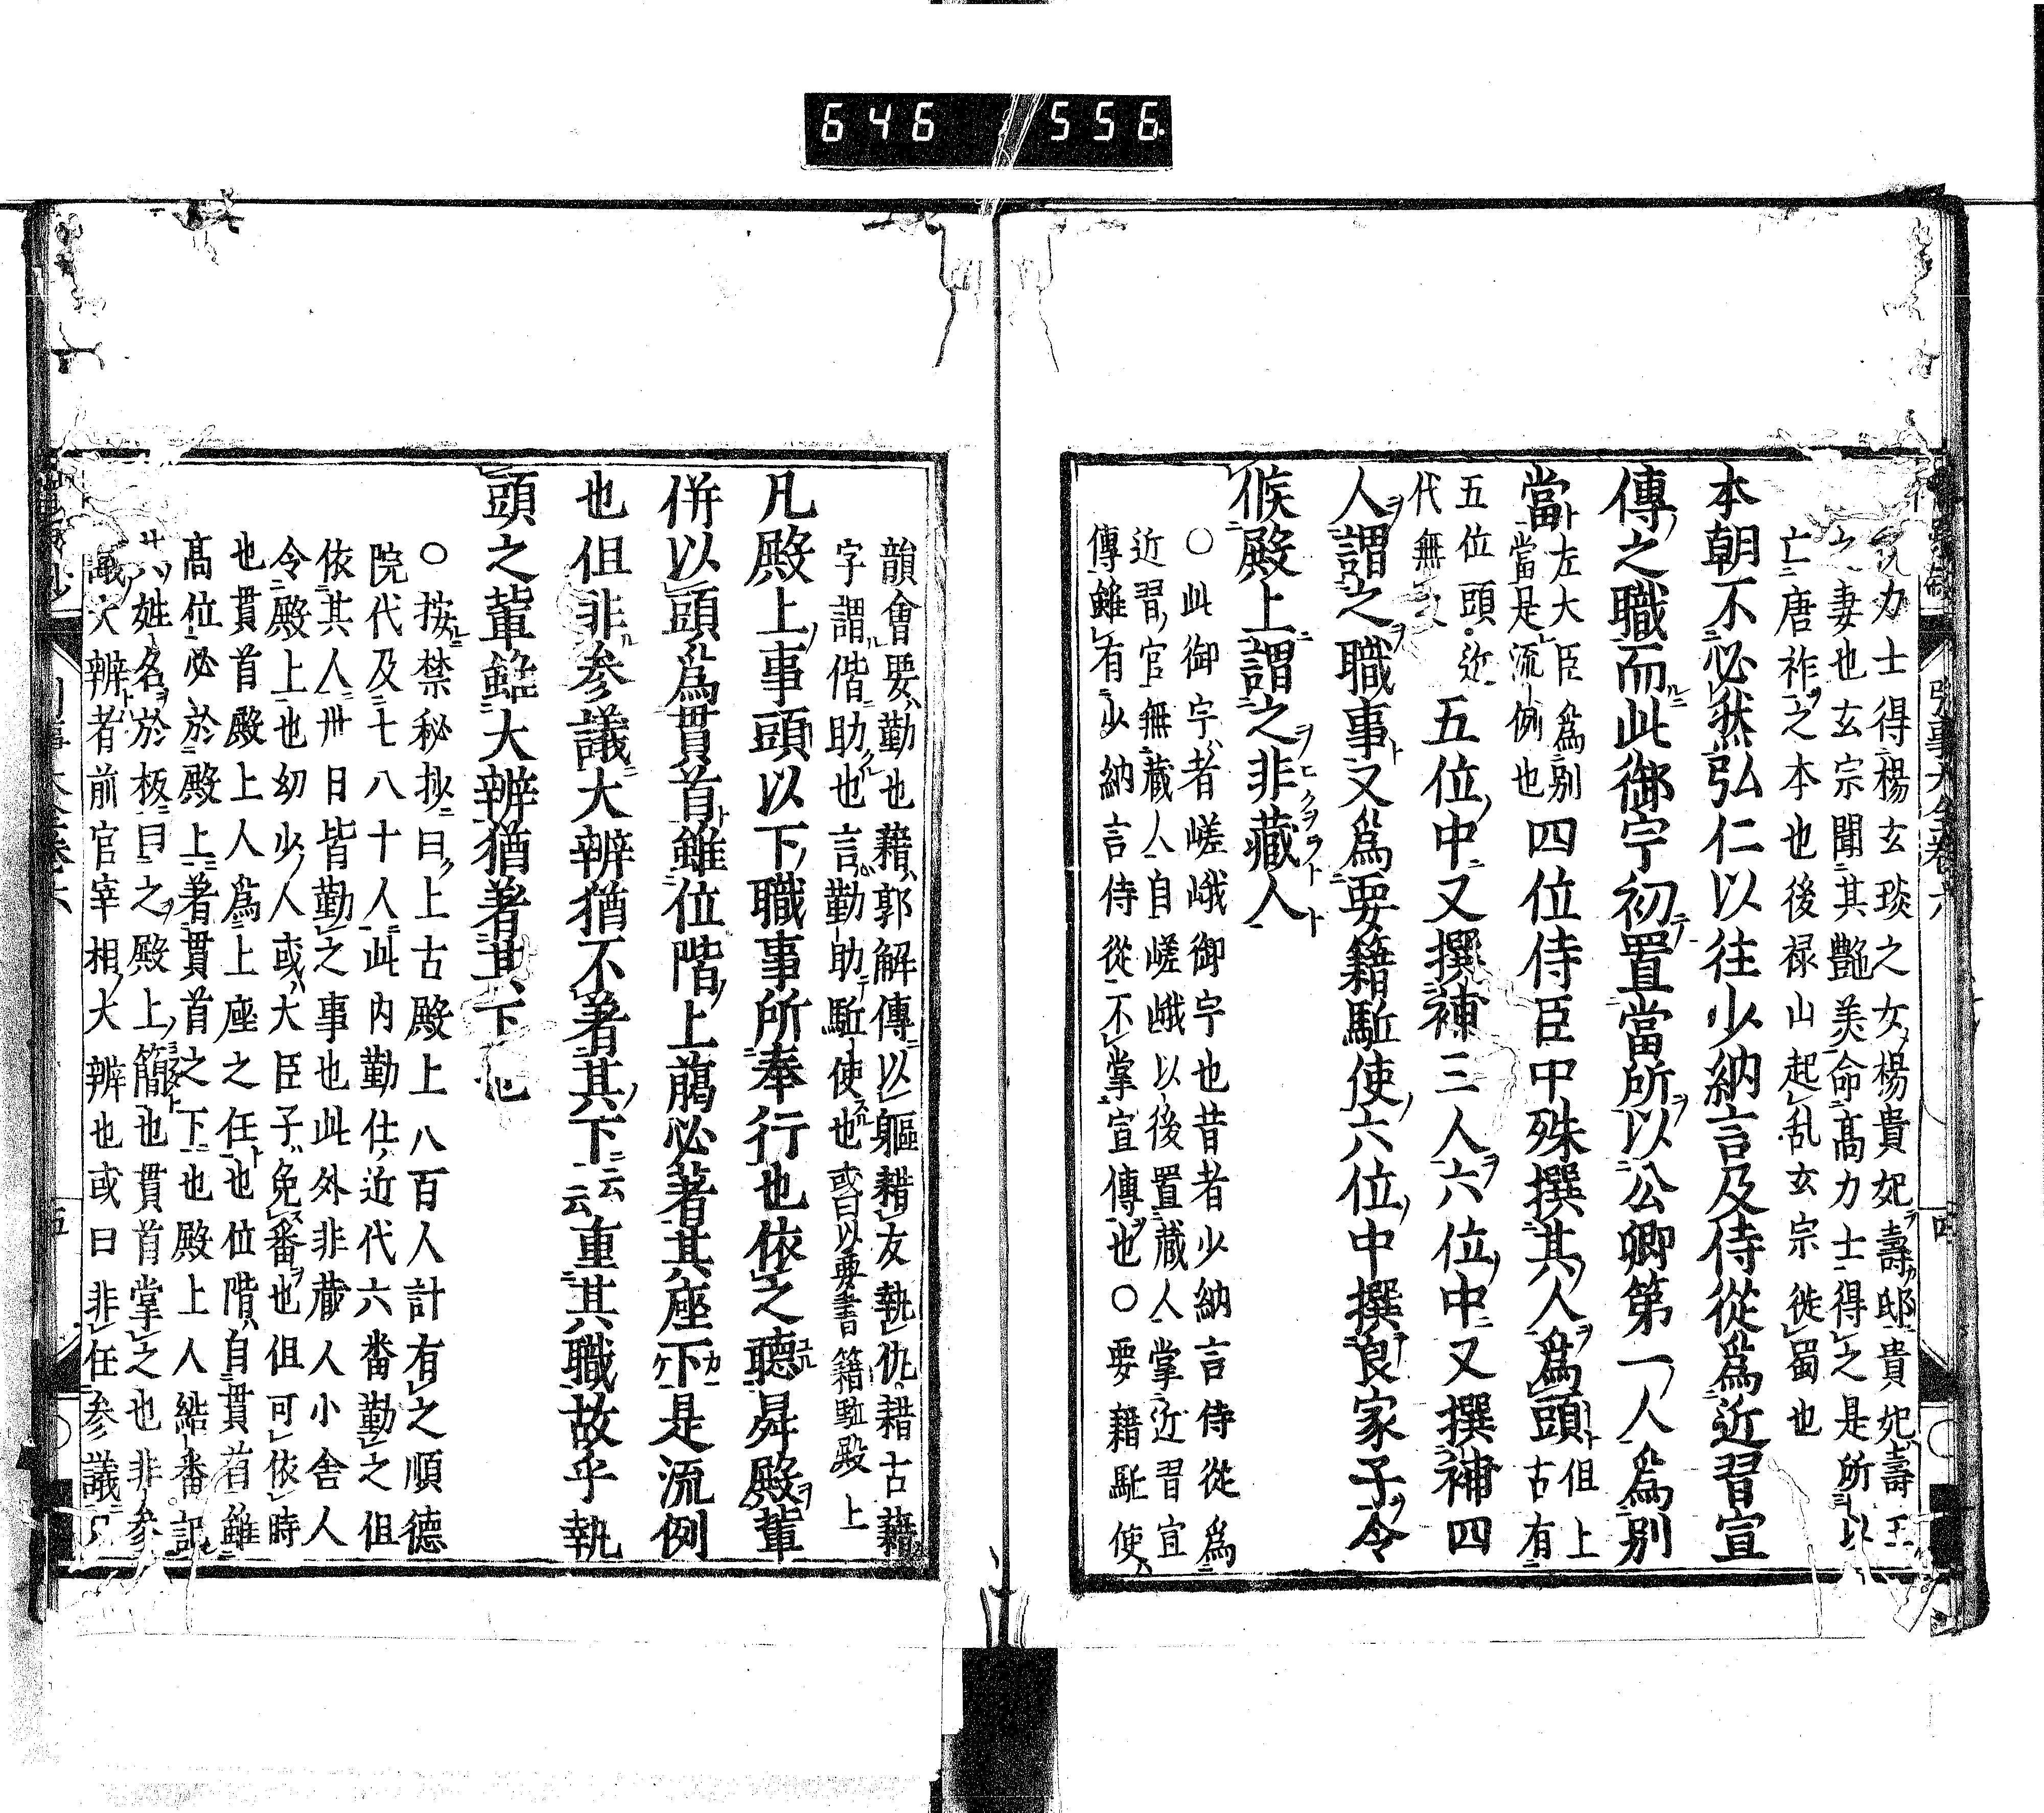 646 556
力士得楊玄琰之女楊貴妃壽邸貴妃壽王
之妻也玄宗聞其艶美命高力士得之是所以
亡唐祚之本也後禄山起乱玄宗徙蜀也
本朝不必然弘仁以往少納言及侍從爲近習宣
傳之職而此御宇初置當所以公卿第一人爲別
當左大臣爲別當是流例也四位侍臣中殊撰其人爲頭但上古有
五位頭近代無 五位中又撰補三人六位中又撰補四
人謂之職事又爲要籍駈使六位中撰良家子令
候殿上謂之非藏人
○此御宇者嵯峨御宇也昔者少納言侍從爲
近習官無藏人自嵯峨以後置藏人掌近習宣
傳雖有少納言侍從不掌宣傳也○要籍駈使
韻會要勤也藉郭解傳以軀藉友執仇藉古籍
字謂偕助也言勤助駈使也或曰以要書籍駈殿上
凡殿上事頭以下職事所奉行也依之聽昇殿輩
併以頭爲貫首雖位階上﨟必著其座下是流例
也但非参議大辨猶不著其下云云重其職故乎執
頭之輩雖大辨猶著其下也
○按禁秘抄曰上古殿上八百人計有之順德
院代及七八十人此内勤仕近代六番勤之但
依其人卅日皆勤之事也此外非藏人小舍人
令殿上也幼少人或大臣子免番也但可依時
也貫首殿上人爲上座之任也位階自貫首雖
高位必於殿上著貫首之下也殿上人結番記
姓名於板曰之殿上簡也貫首掌之也非参
議大辨者前官宰相大辨也或曰非任参議